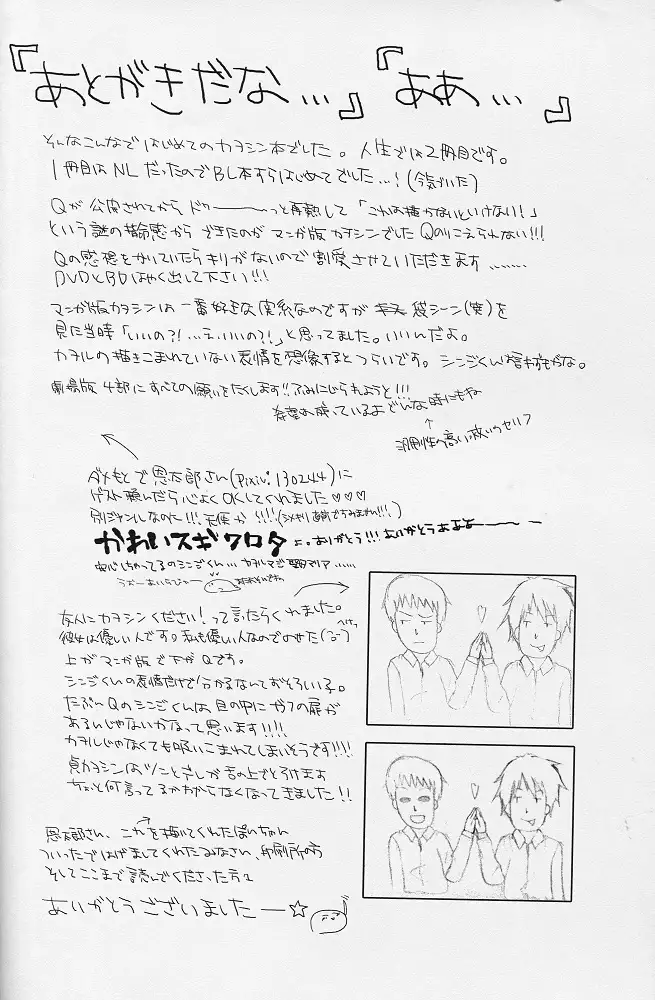 『あとがきだな…』『ああ…』
そんなこんなではじめてのカヲシン本でした。人生では2冊目です。
1冊目はNLだったのでBL本すらはじめてでした…!(今気づいた)
Qが公開されてからドゥーーーっと再熱して「これは描かないといけない!」
という謎の使命感からできたのがマンガ版カヲシンでしたQのりこえられない!!!
Qの感想をかいていたらキリがないので割愛させていただきます………
DVDとBDはやく出して下さい!!!
マンガ版カヲシンは一番好きな関係なのですが 袋シーン(笑)を
見た当時「いいの?!…え、いいの?!」と思ってました。いいんだよ。
カヲルの描きこまれていない表情を想像するとつらいです。シンジくん
劇場版4部にすべての願いをたくします!!ふみにじられようと!!!
希望は残っているよどんな時にもね
↑
汎用性の高い救いのセリフ
ダメもとで恩太郎さん(pixiv:130244)に
ゲスト頼んだら心よくOKしてくれました♡♡♡
別ジャンルなのに!!!天使か!!!!(シメキリ直前ですみません!!!)
かわいスギワロタ よ。ありがとう!!!ありがとうあああーーー ー
シンジくん…カヲルマジ聖母マリア……
友人にカヲシンください!って言ったらくれました。
彼女は優しい人です。私も優しい人なのでのせた
上がマンガ版で下がQです。
シンジくんの表情だけで分かるなんておそろしい子。
たぶんQのシンジくんは目の中にガフの扉が
あるんじゃないかなって思います!!!!
カヲルじゃなくても吸いこまれてしまいそうです!!!!
貞カヲシンはツンとさしが舌の上でとろけます
ちょっと何言ってるかわからなくなってきました!!
恩太郎さん、これを描いてくれたぽいちゃん
ついったではげましてくれたみなさん、印刷所の方
そしてここまで読んでくださった方々
ありがとうございましたー☆